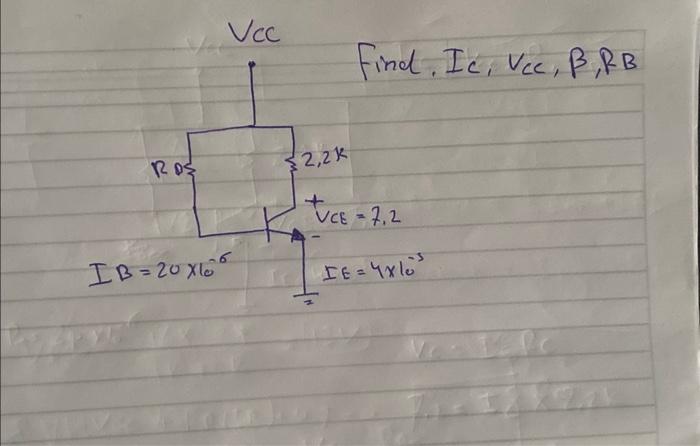 Vcc
Find. Ic, Vcc, β, RB
2,2K
+
VCE = 7,2
-
IB = 20 x10⁻⁶
IE = 4x10⁻³